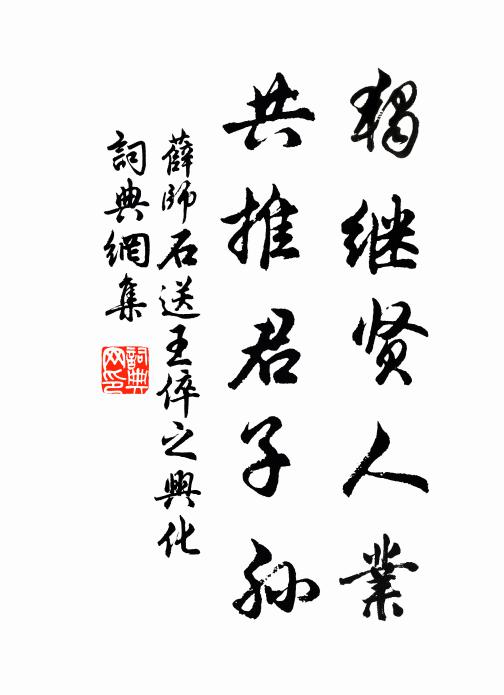 獨继贤人業
共推君子孙
薛師石送王倅之興化
詞典網集
詞典
网印